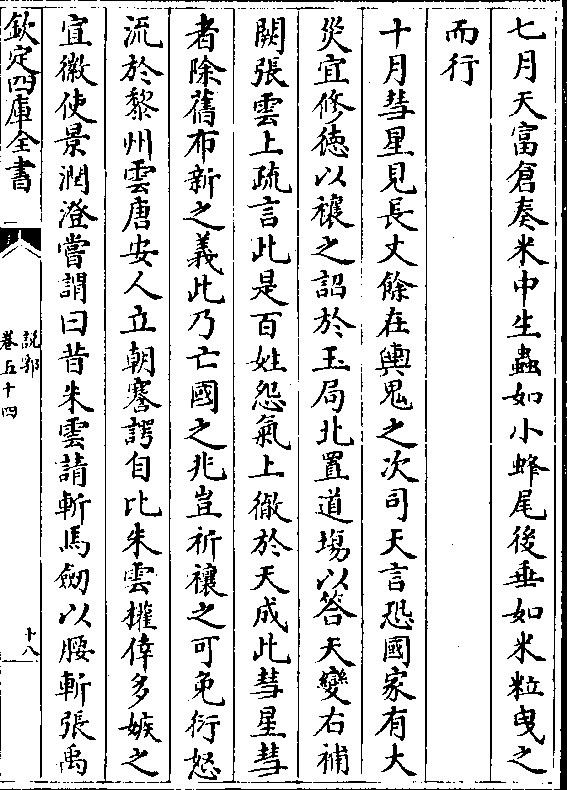 七月天富倉奏米中生蟲如小蜂尾後垂如米粒曳之
而行
十月彗星見長丈餘在輿鬼之次司天言恐國家有大
災宜修德以禳之詔於玉局北置道場以答天變右補
闕張雲上疏言此是百姓怨氣上徹於天成此彗星彗
者除舊布新之義此乃亡國之兆豈祈禳之可免衍怒
流於黎州雲唐安人立朝謇諤自比朱雲權倖多嫉之
宣徽使景潤澄嘗謂曰昔朱雲請斬馬劒以腰斬張禹
欽定四庫全書
說郛
卷五十四
十八